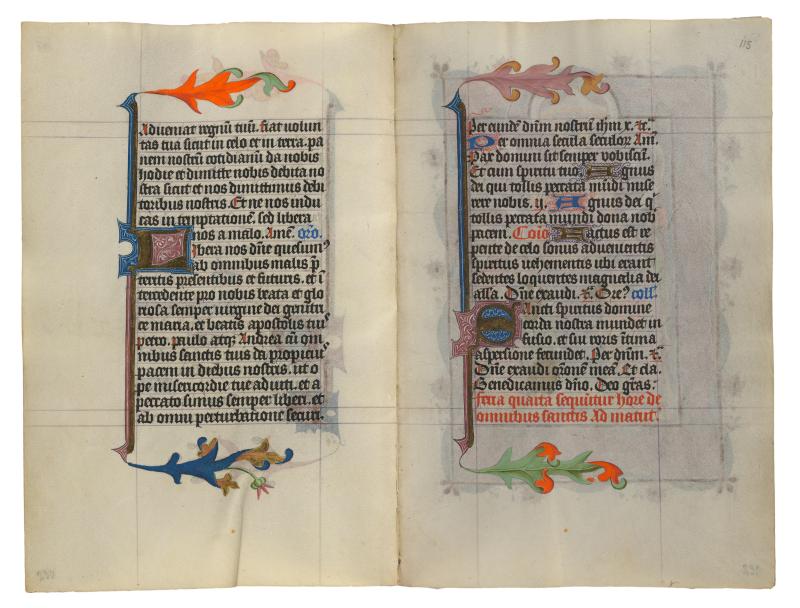 Adveniat regnū tuū. fiat volun
tas tua sicut in celo et in terra. pa
nem nostrū cotidianū da nobis
hodie et dimitte nobis debita no
stra sicut et nos dimittimus debi
toribus nostris. Et ne nos indu
cas in temptationē. sed libera
nos a malo. Amē. orō.
Libera nos dn̄e quesumꝰ
ab omnibus malis p̄
teritis presentibus et futuris. et ī
tercedente pro nobis beata et glo
riosa semper virgine dei genitri
ce maria. et beatis apostolis tuis
petro. paulo atqꝫ Andrea cū om
nibus sanctis tuis da propiciuˢ
pacem in diebus nostris. ut o
pe misericordie tue adiuti. et a
peccato simus semper liberi. et
ab omni perturbatione securi.
115
Per eundē dn̄m nostrū ihm x. tc.
Per omnia secula seculoꝝ Am̄.
Pax domini sit semper vobiscū.
Et cum spiritu tuo Agnus
dei qui tollis peccata mūdi mise
rere nobis. ij. Agnus dei q
tollis peccata mundi dona nob
pacem. Coīo Factus est re
pente de celo sonus advenientis
spiritus vehementis ubi erant
sedentes loquentes magnalia dei
alla. Dn̄e exaudi. Ore? coll.
Sancti spiritus domine
corda nostra mundet in
fusio. et sui roris ītima
aspersione fecundet. Per dn̄m.
Dn̄e exaudi orōnem meā. Et cla.
Benedicamus dn̄o. Deo grās.
feria quarta sequūtur hore de
omnibus sanctis Ad matut.